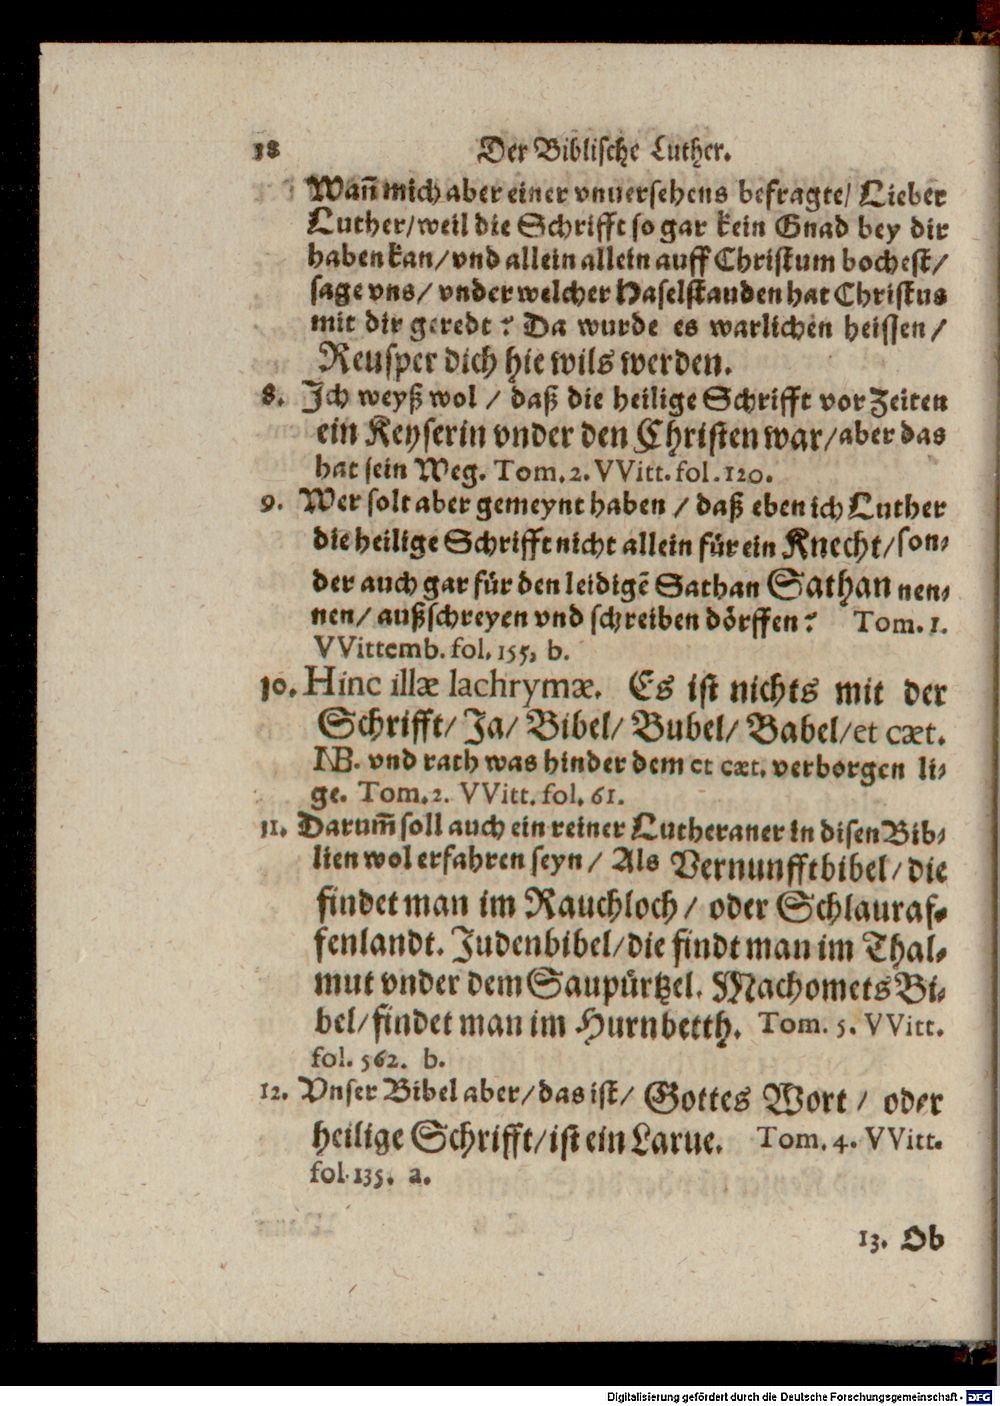 18 Der Biblische Luther.
Wañ mich aber einer vnuersehens befragte/ Lieber
Luther/ weil die Schrifft so gar kein Gnad bey dir
haben kan/ vnd allein allein auff Christum bochest/
sage vns/ vnder welcher Haselstauden hat Christus
mit dir geredt? Da wurde es warlichen heissen/
Reusper dich hie wils werden.
8. Ich weyß wol / daß die heilige Schrifft vor Zeiten
ein Keyserin vnder den Christen war/ aber das
hat sein Weg. Tom. 2. VVitt. fol. 120.
9. Wer solt aber gemeynt haben / daß eben ich Luther
die heilige Schrifft nicht allein für ein Knecht/ son-
der auch gar für den leidigẽ Sathan Sathan nen-
nen/ außschreyen vnd schreiben dörffen? Tom. 1.
VVittemb. fol. 155, b.
10. Hinc illæ lachrymæ. Es ist nichts mit der
Schrifft/ Ja/ Bibel/ Bubel/ Babel/ et cæt.
NB. vnd rath was hinder dem et cæt. verborgen li-
ge. Tom. 2. VVitt. fol. 61.
11. Darum̃ soll auch ein reiner Lutheraner in disen Bib-
lien wol erfahren seyn/ Als Vernunfftbibel/ die
findet man im Rauchloch/ oder Schlauraf-
fenlandt. Judenbibel/ die findt man im Thal-
mut vnder dem Saupürtzel. Machomets Bi-
bel/ findet man im Hurnbetth. Tom. 5. VVitt.
fol. 562. b.
12. Vnser Bibel aber/ das ist/ Gottes Wort / oder
heilige Schrifft/ ist ein Larue. Tom. 4. VVitt.
fol. 135. a.
13. Ob
Digitalisierung gefördert durch die Deutsche Forschungsgemeinschaft - DFG